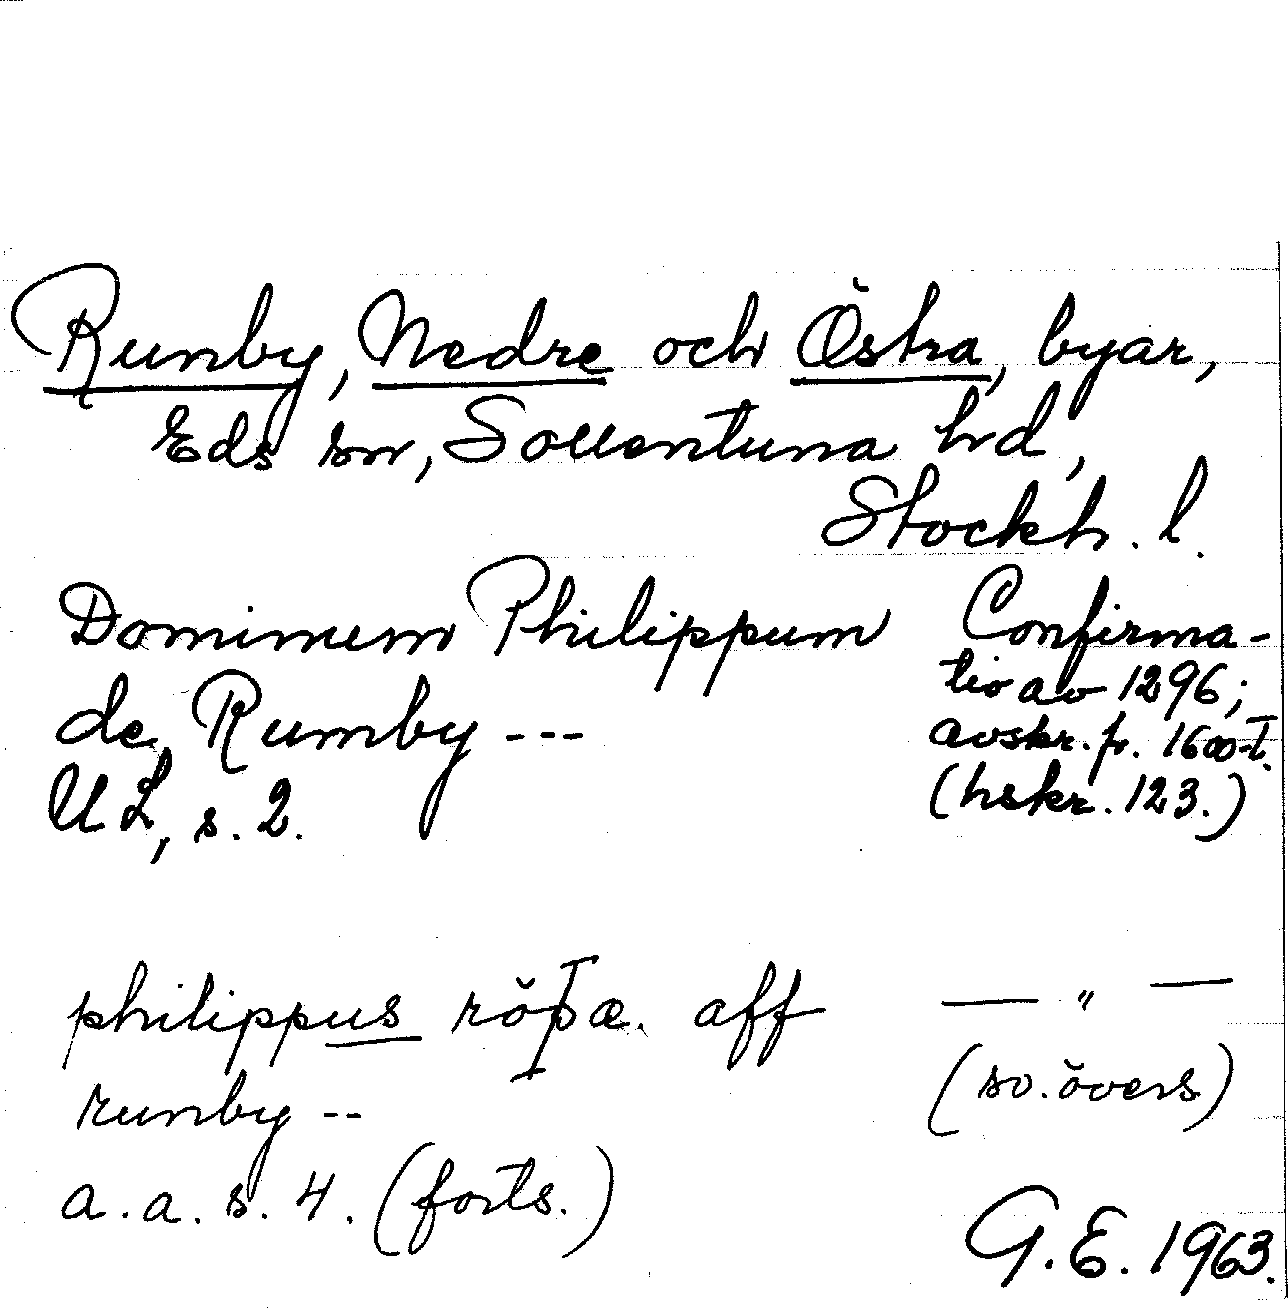 Runby, Nedre och Östra, byar,
Eds sn, Sollentuna hd,
Stockh. l.
Dominum Philippum
de Rumby ---
UL, s. 2.
Confirma-
tio av 1296;
avskr. fr. 1600-t.
(hskr. 123.)
philippus röþæ. aff
runby --
a.a. s. 4. (forts.)
— " —
(sv. övers)
G.E. 1963.